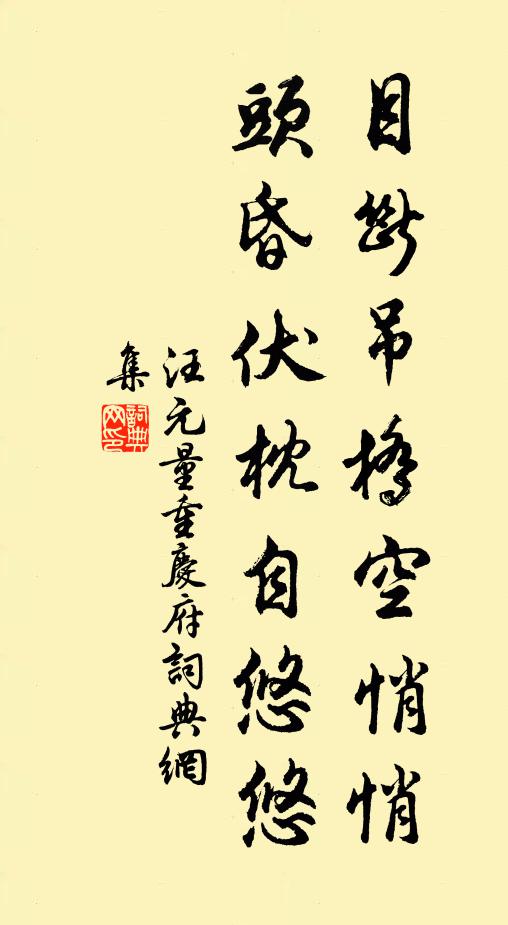 目斷吊橋空悄悄
頭昏伏枕自悠悠
汪元量重慶府詞典網
集
詞典網印